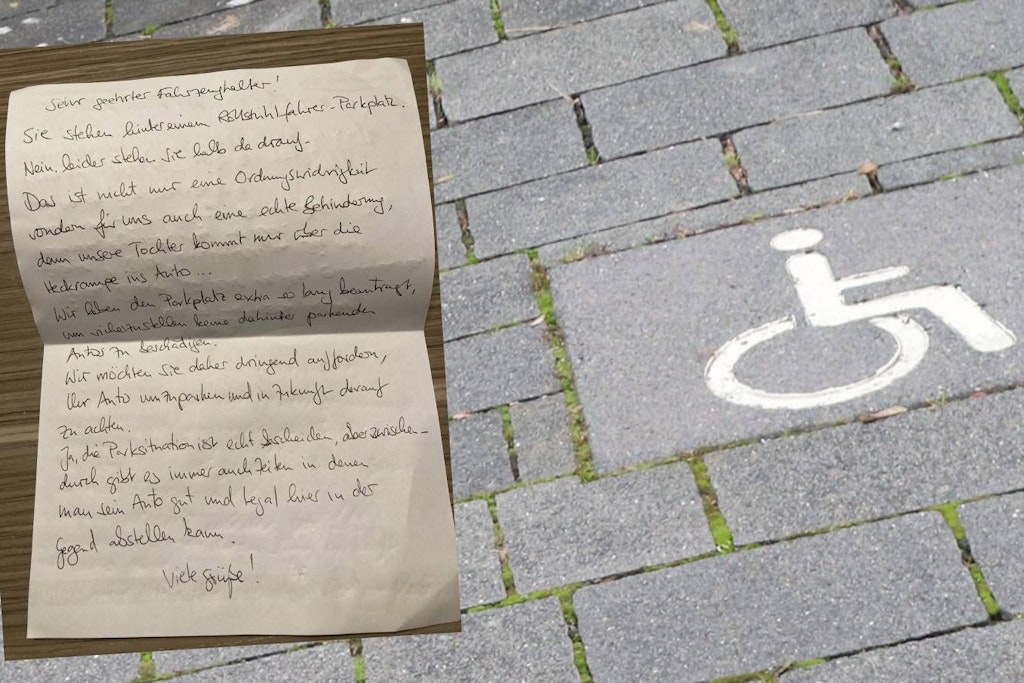 Sehr geehrter Fahrzeughalter!
Sie stehen hinter einem Rollstuhlfahrer-Parkplatz.
Nein, leider stehen sie halb da drauf.
Das ist nicht nur eine Ordnungswidrigkeit
sondern für uns auch eine echte Behinderung,
denn unsere Tochter kommt nur über die
Heckrampe ins Auto...
Wir haben den Parkplatz extra so lang beantragt,
um sicherzustellen keine dahinter parkenden
Autos zu beschädigen.
Wir möchten sie daher dringend auffordern,
Ihr Auto umzuparken und in Zukunft darauf
zu achten.
Ja, die Parksituation ist echt bescheiden, aber zwischen-
durch gibt es immer auch Zeiten in denen
man sein Auto gut und Legal hier in der
Gegend abstellen kann.
Viele Grüße!